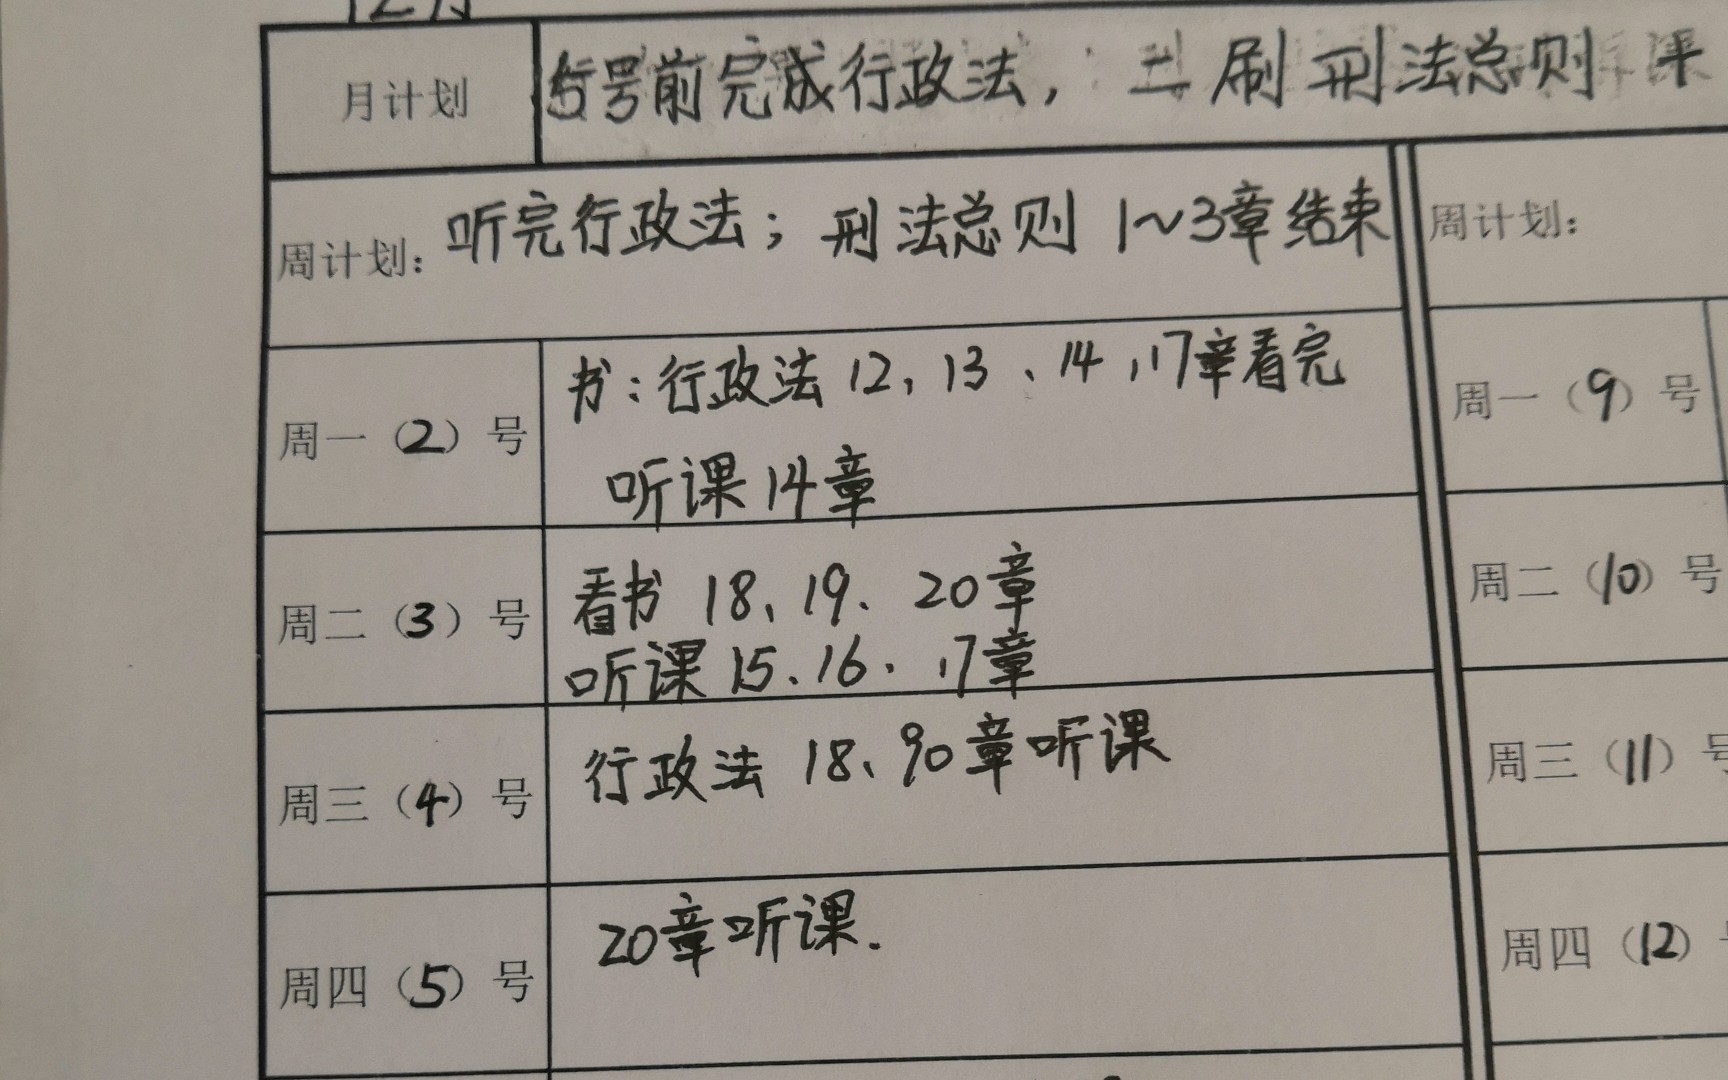 12月
月计划 号前完成行政法， 二刷刑法总则
周计划：听完行政法；刑法总则 1~3章结束
周计划：
周一（2）号
书：行政法 12, 13、14, 17章看完
听课 14章
周一（9）号
周二（3）号
看书 18、19、20章
听课 15、16、17章
周二（10）号
周三（4）号
行政法 18、90章听课
周三（11）号
周四（5）号
20章听课.
周四（12）